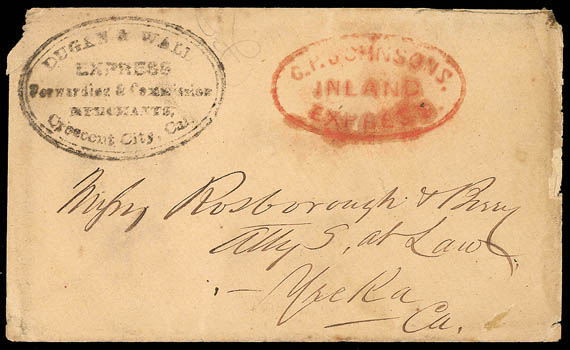 DUGAN & WALL
EXPRESS
Forwarding & Commission
MERCHANTS,
Crescent City, Cal.
C.P. JOHNSONS.
INLAND
EXPRESS.
Messrs Rosborough & Berry
Attys, at Law
Yreka
Ca.